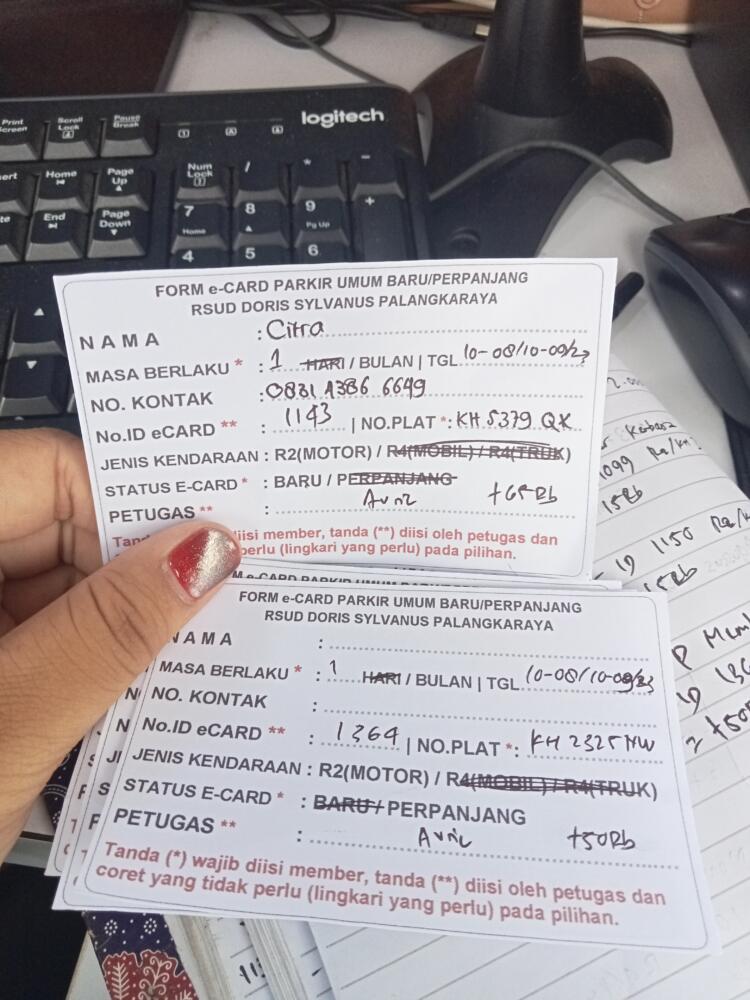 Print Screen
Scroll Lock
Pause Break
logitech
Home
Page Up
Num Lock
/
*
-
End
Page Down
7
8
9
+
Home
Pg Up
4
5
6
FORM e-CARD PARKIR UMUM BARU/PERPANJANG
RSUD DORIS SYLVANUS PALANGKARAYA
NAMA : Citra
MASA BERLAKU * : 1 HARI / BULAN | TGL 10-08/10-09/23
NO. KONTAK : 0831 1386 6649
No.ID eCARD ** : 1143 | NO.PLAT *: KH 5379 QX
JENIS KENDARAAN : R2(MOTOR) / R4(MOBIL) / R4(TRUK)
STATUS E-CARD * : BARU / PERPANJANG
PETUGAS ** : Avric +65Rb
diisi member, tanda (**) diisi oleh petugas dan
perlu (lingkari yang perlu) pada pilihan.
FORM e-CARD PARKIR UMUM BARU/PERPANJANG
RSUD DORIS SYLVANUS PALANGKARAYA
NAMA :
MASA BERLAKU * : 1 HARI / BULAN | TGL 10-08/10-09/23
NO. KONTAK :
No.ID eCARD ** : 1364 | NO.PLAT *: KH 2325 NW
JENIS KENDARAAN : R2(MOTOR) / R4(MOBIL) / R4(TRUK)
STATUS E-CARD * : BARU / PERPANJANG
PETUGAS ** : Avric +50Rb
Tanda (*) wajib diisi member, tanda (**) diisi oleh petugas dan
coret yang tidak perlu (lingkari yang perlu) pada pilihan.
1099
15Rb
1150
15Rb